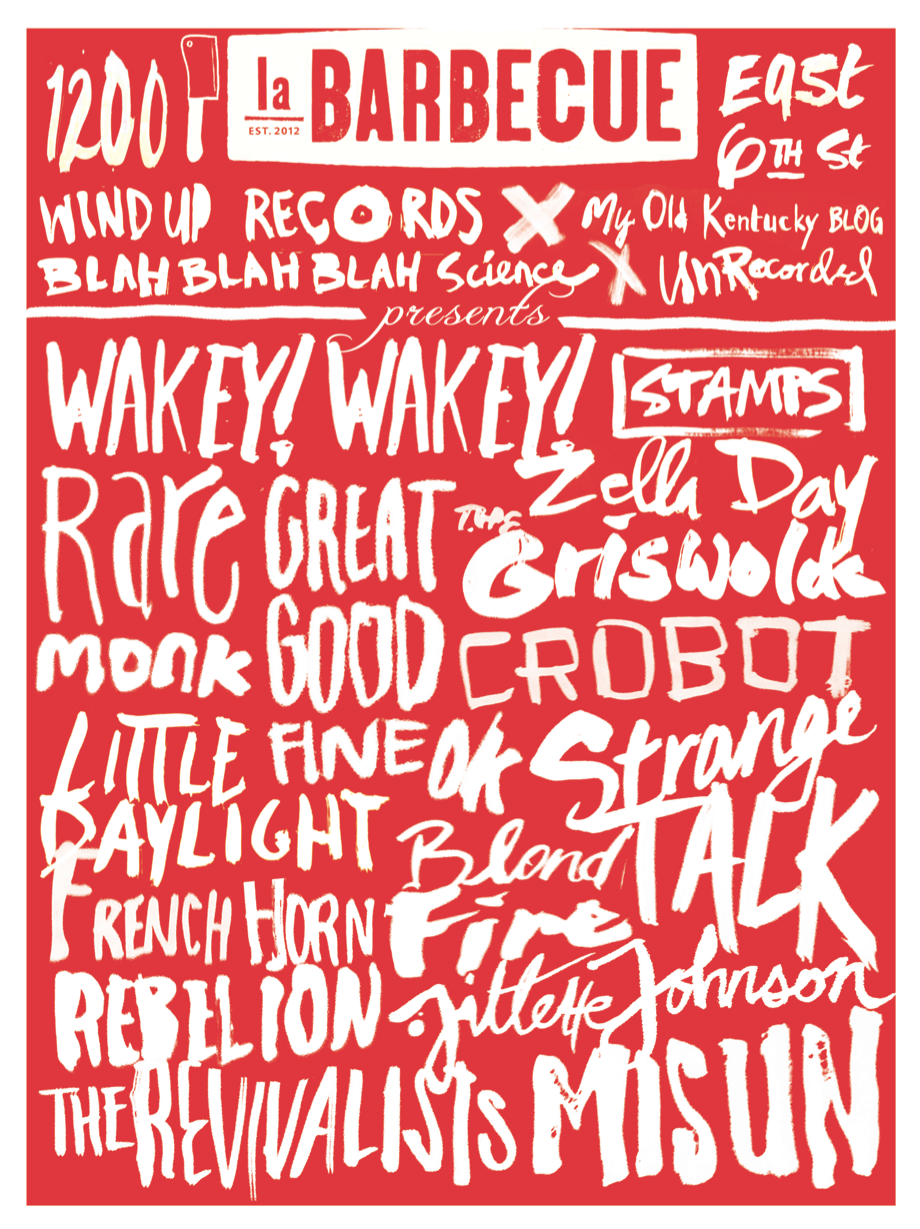 1200 la BARBECUE East
EST. 2012 6TH St
WIND UP RECORDS X My Old Kentucky BLOG
BLAH BLAH BLAH Science X UnRecorded
presents
WAKEY! WAKEY! STAMPS
Rare Monk
GREAT GOOD FINE OK
Zella Day
THE Griswolds
CROBOT
LITTLE DAYLIGHT
Strange TALK
Blond Fire
FRENCH HORN REBELION
Jillette Johnson
THE REVIVALISTS MISUN